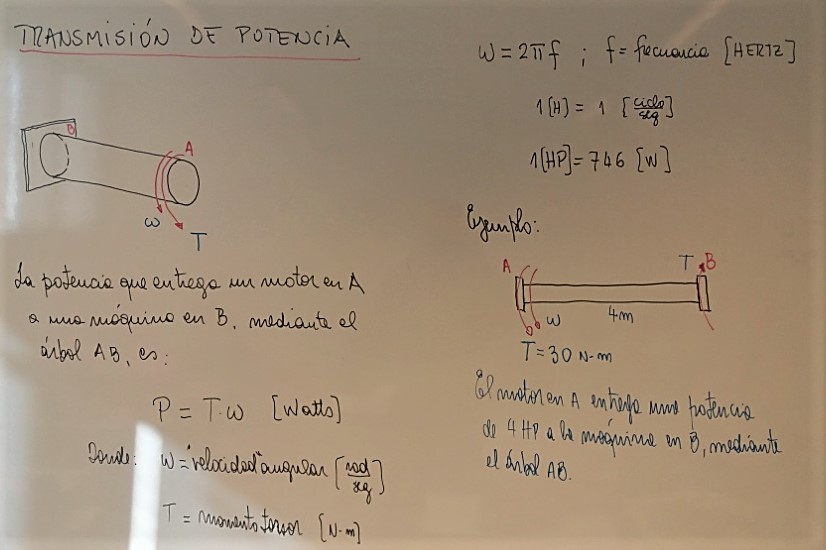 TRANSMISIÓN DE POTENCIA
B
A
ω
T
La potencia que entrega un motor en A
a una máquina en B, mediante el
árbol AB, es:
P = T·ω [Watts]
Donde: ω = velocidad angular [rad/seg]
T = momento torsor [N-m]
ω = 2πf ; f = frecuencia [HERTZ]
1[H] = 1 [ciclo/seg]
1[HP] = 746 [W]
Ejemplo:
A
T
B
ω
4m
T = 30 N-m
El motor en A entrega una potencia
de 4 HP a la máquina en B, mediante
el árbol AB.